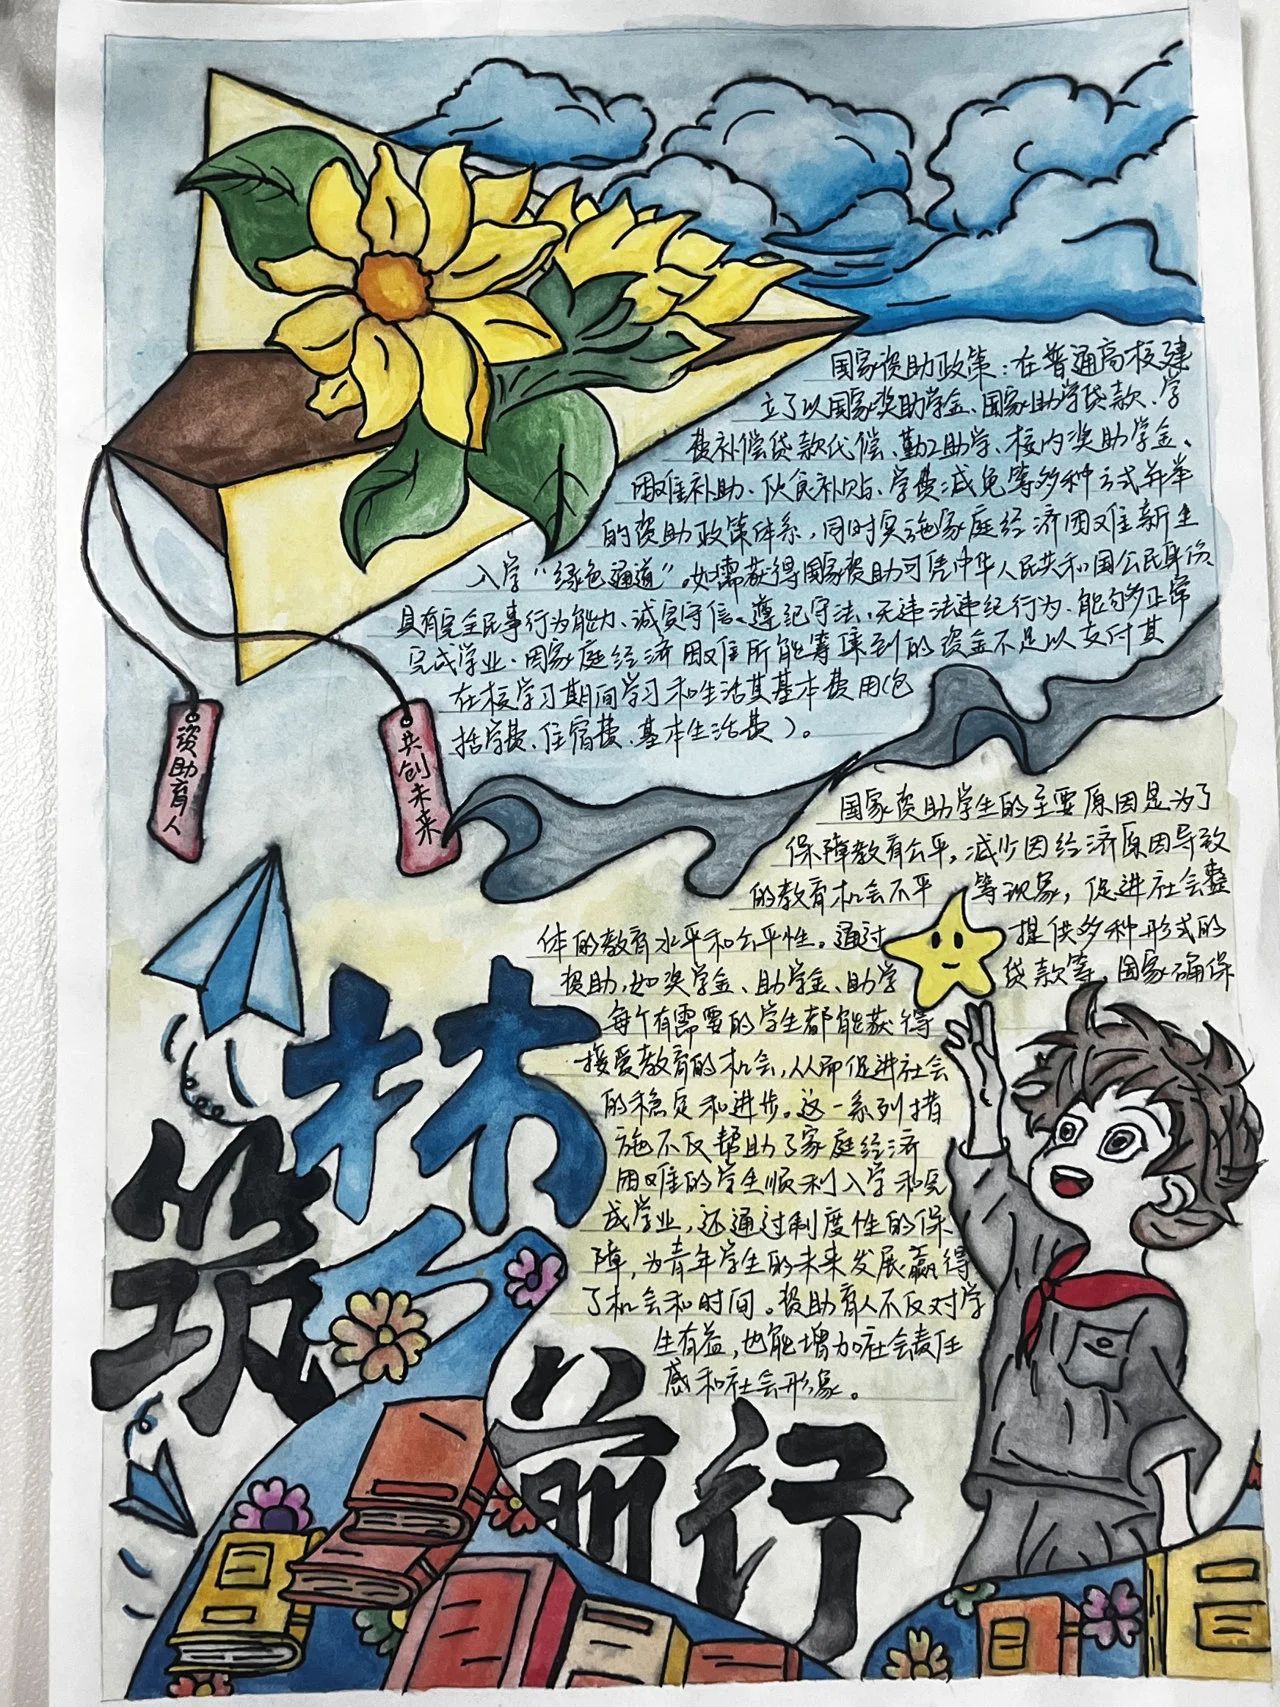 国家资助政策：在普通高校建
立了以国家奖助学金、国家助学贷款、学
费补偿贷款代偿、勤工助学、校内奖助学金、
困难补助、伙食补贴、学费减免等多种方式并举
的资助政策体系，同时实施家庭经济困难新生
入学“绿色通道”。如需获得国家资助可凭中华人民共和国公民身份、
具有完全民事行为能力、诚实守信、遵纪守法、无违法违纪行为、能够多正常
完成学业、因家庭经济困难所能筹集到的资金不足以支付其
在校学习期间学习和生活其基本费用（包
括学费、住宿费、基本生活费）。
资助育人
共创未来
国家资助学生的主要原因是为了
保障教育公平，减少因经济原因导致
的教育机会不平等现象，促进社会整
体的教育水平和公平性。通过提供多种形式的
资助，如奖学金、助学金、助学贷款等，国家确保
每个有需要的学生都能获得
接受教育的机会，从而促进社会
的稳定和进步。这一系列措
施不仅帮助了家庭经济
困难的学生顺利入学和完
成学业，还通过制度性的保
障，为青年学生的未来发展赢得
了机会和时间。资助育人不仅对学
生有益，也能增加社会责任
感和社会形象。
筑梦
前行